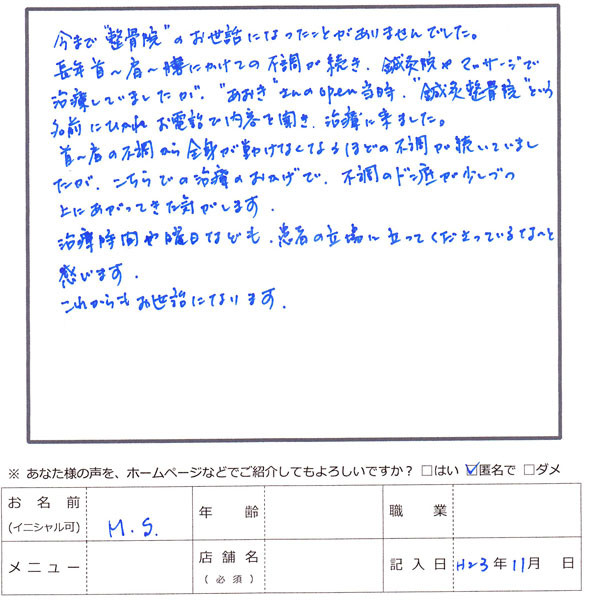 今まで"整骨院"のお世話になったことがありませんでした。
長年首〜肩〜腰にかけての不調が続き、鍼灸院やマッサージで
治療していましたが、"あおき"さんのopen当時、"鍼灸整骨院"という
名前にひかれお電話で内容を聞き、治療に来ました。
首〜肩の不調から全身が動けなくなるほどの不調が続いていまし
たが、こちらでの治療のおかげで、不調のドン底が少しづつ
上にあがってきた気がします。
治療時間や曜日なども、患者の立場に立ってくださっているなぁと
感じます。
これからもお世話になります。
※ あなた様の声を、ホームページなどでご紹介してもよろしいですか？ □はい ☑匿名で □ダメ
お名前 (イニシャル可) M.S. 年齢 職業
メニュー 店舗名 (必須) 記入日 H23年11月 日